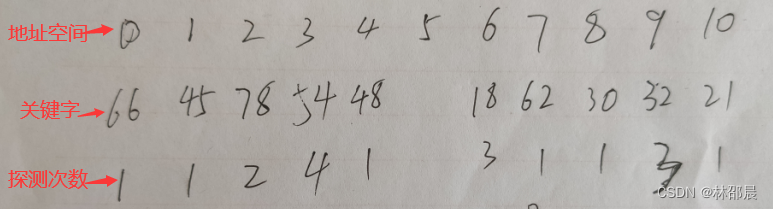 地址空间 0 1 2 3 4 5 6 7 8 9 10
关键字 66 45 78 54 48 18 62 30 32 21
探测次数 1 1 2 4 1 3 1 1 3 1
CSDN @林邵晨